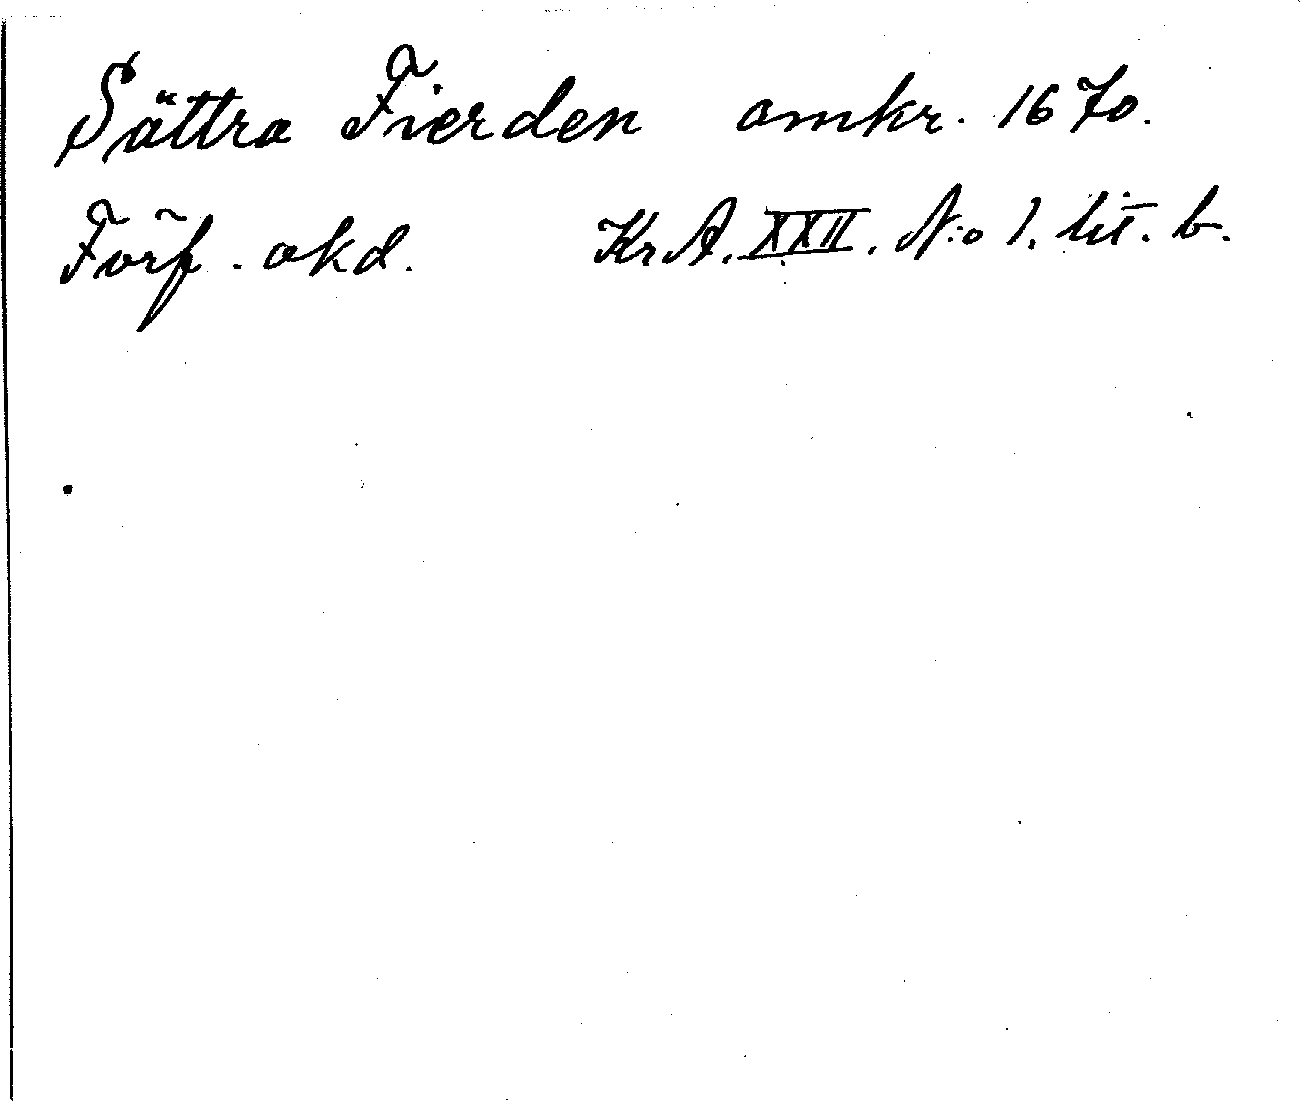 Sättra Fierden omkr. 1670.
Förf. okd. Kr A. XXII. N:o 1. lit. b.